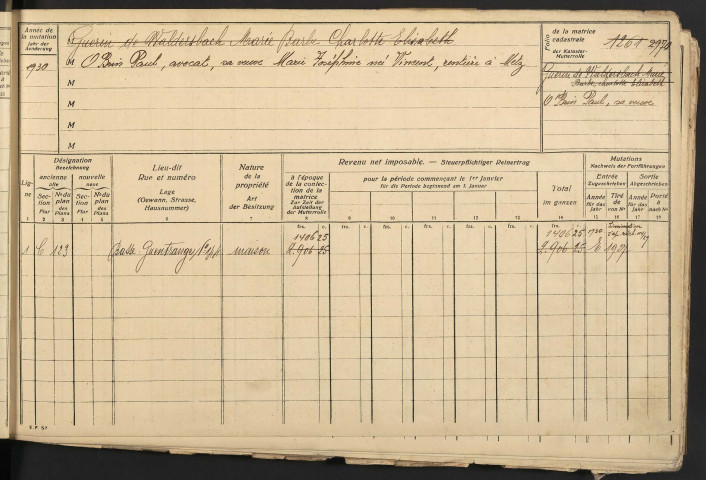 Année de la mutation
Jahr der Aenderung
Guerin de Waldersbach Marie Barbe Charlotte Elisabeth
1930
M O Brin Paul, avocat, sa veuve Marie Joséphine né Vincent, rentière à Metz
M
M
M
M
Folio
de la matrice cadastrale
der Kataster-Mutterrolle
1261 2970
Guerin de Waldersbach Marie
Barbe, Charlotte Elisabeth
O Brin Paul, sa veuve
Ligne
Désignation
Bezeichnung
ancienne
alte
nouvelle
neue
Section
Flur
No du plan
No des Plans
Section
Flur
No du plan
No des Plans
Lieu-dit
Rue et numéro
Lage
(Gewann, Strasse, Hausnummer)
Nature de la propriété
Art der Besitzung
Revenu net imposable. — Steuerpflichtiger Reinertrag
à l'époque de la confection de la matrice
Zur Zeit der Aufstellung der Mutterrolle
pour la période commençant le 1er Janvier
für die Periode beginnend am 1. Januar
Total
im ganzen
Mutations
Nachweis der Fortführungen
Entrée
Zugeschrieben
Sortie
Abgeschrieben
Année
für das Jahr
Tiré de
von No
Année
für das Jahr
Porté à
nach No
1 2 3 4 5 6 7 8 9 10 11 12 13 14 15 16 17 18
frs. c. frs. c. frs. c. frs. c. frs. c. frs. c. frs. c.
1406 25 1406 25 1930
1 C 123 Basse Guentrange No maison 2.906 25 2.906 25 E 1907
E.F. 57